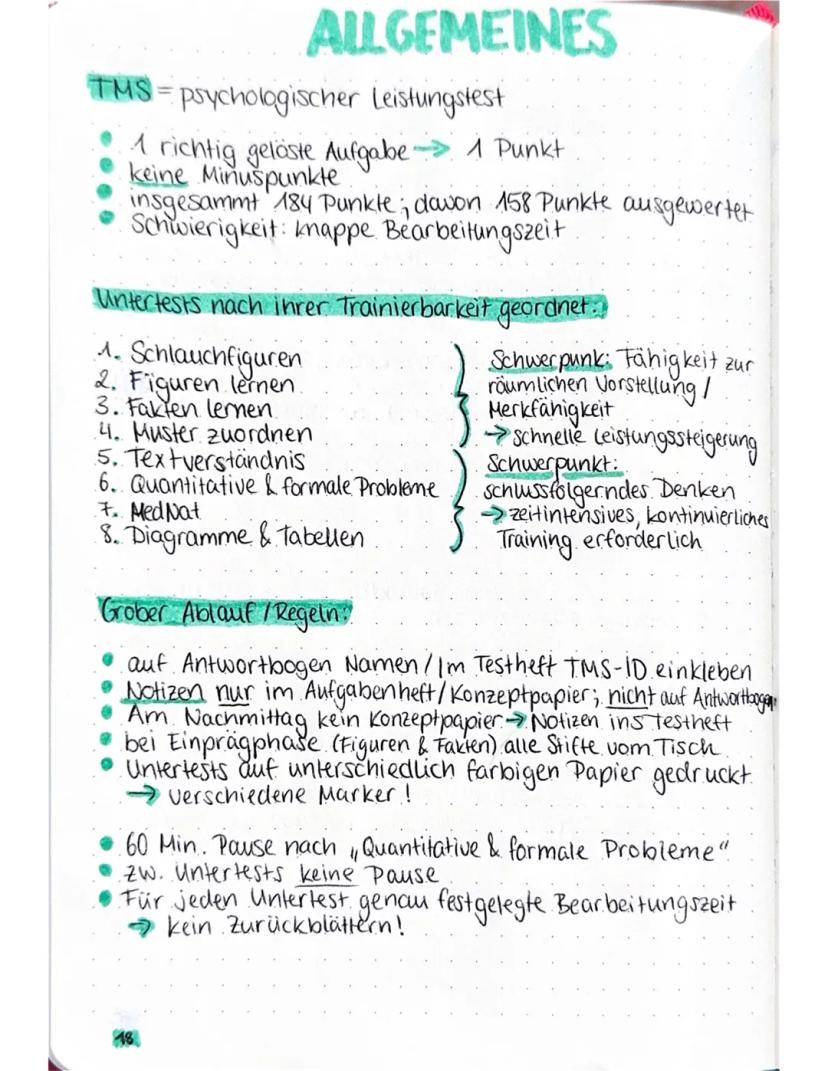 ALLGEMEINES
TMS = psychologischer Leistungstest
1 richtig gelöste Aufgabe → 1 Punkt
keine Minuspunkte
insgesammt 184 Punkte; davon 158 Punkte ausgewertet
Schwierigkeit: knappe Bearbeitungszeit
Untertests nach ihrer Trainierbarkeit geordnet:
1. Schlauchfiguren
2. Figuren lernen
3. Fakten lernen
4. Muster zuordnen
5. Textverständnis
6. Quantitative & formale Probleme
7. MedNat
8. Diagramme & Tabellen
Schwerpunk: Fähigkeit zur
räumlichen Vorstellung /
Merkfähigkeit
→ schnelle Leistungssteigerung
Schwerpunkt:
schussfolgerndes Denken
→ zeitintensives, kontinuierliches
Training erforderlich
Grober Ablauf / Regeln:
auf Antwortbogen Namen / Im Testheft TMS-ID einkleben
Notizen nur im Aufgabenheft / Konzeptpapier; nicht auf Antwortbogen
Am Nachmittag kein Konzeptpapier → Notizen ins Testheft
bei Einprägphase (Figuren & Fakten) alle Stifte vom Tisch
Untertests auf unterschiedlich farbigen Papier gedruckt
→ verschiedene Marker!
60 Min. Pause nach „Quantitative & formale Probleme“
zw. Untertests keine Pause
Für jeden Untertest genau festgelegte Bearbeitungszeit
→ kein Zurückblättern!
18